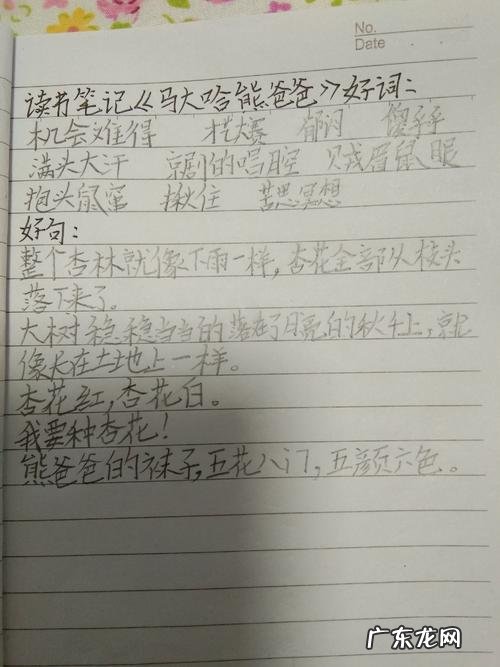 No.
Date
读书笔记《马大哈熊爸爸》好词:
机会难得 大赛 郁闷 傻乎乎
满头大汗 京剧的唱腔 贼眉鼠眼
抱头鼠窜 揪住 苦思冥想
好句:
整个杏林就像下雨一样,杏花全部从枝头
落下来了。
大树稳稳当当的落在了月亮的秋千上,就
像长在土地上一样。
杏花红,杏花白。
我要种杏花!
熊爸爸的袜子,五花八门,五颜六色。
广东龙网